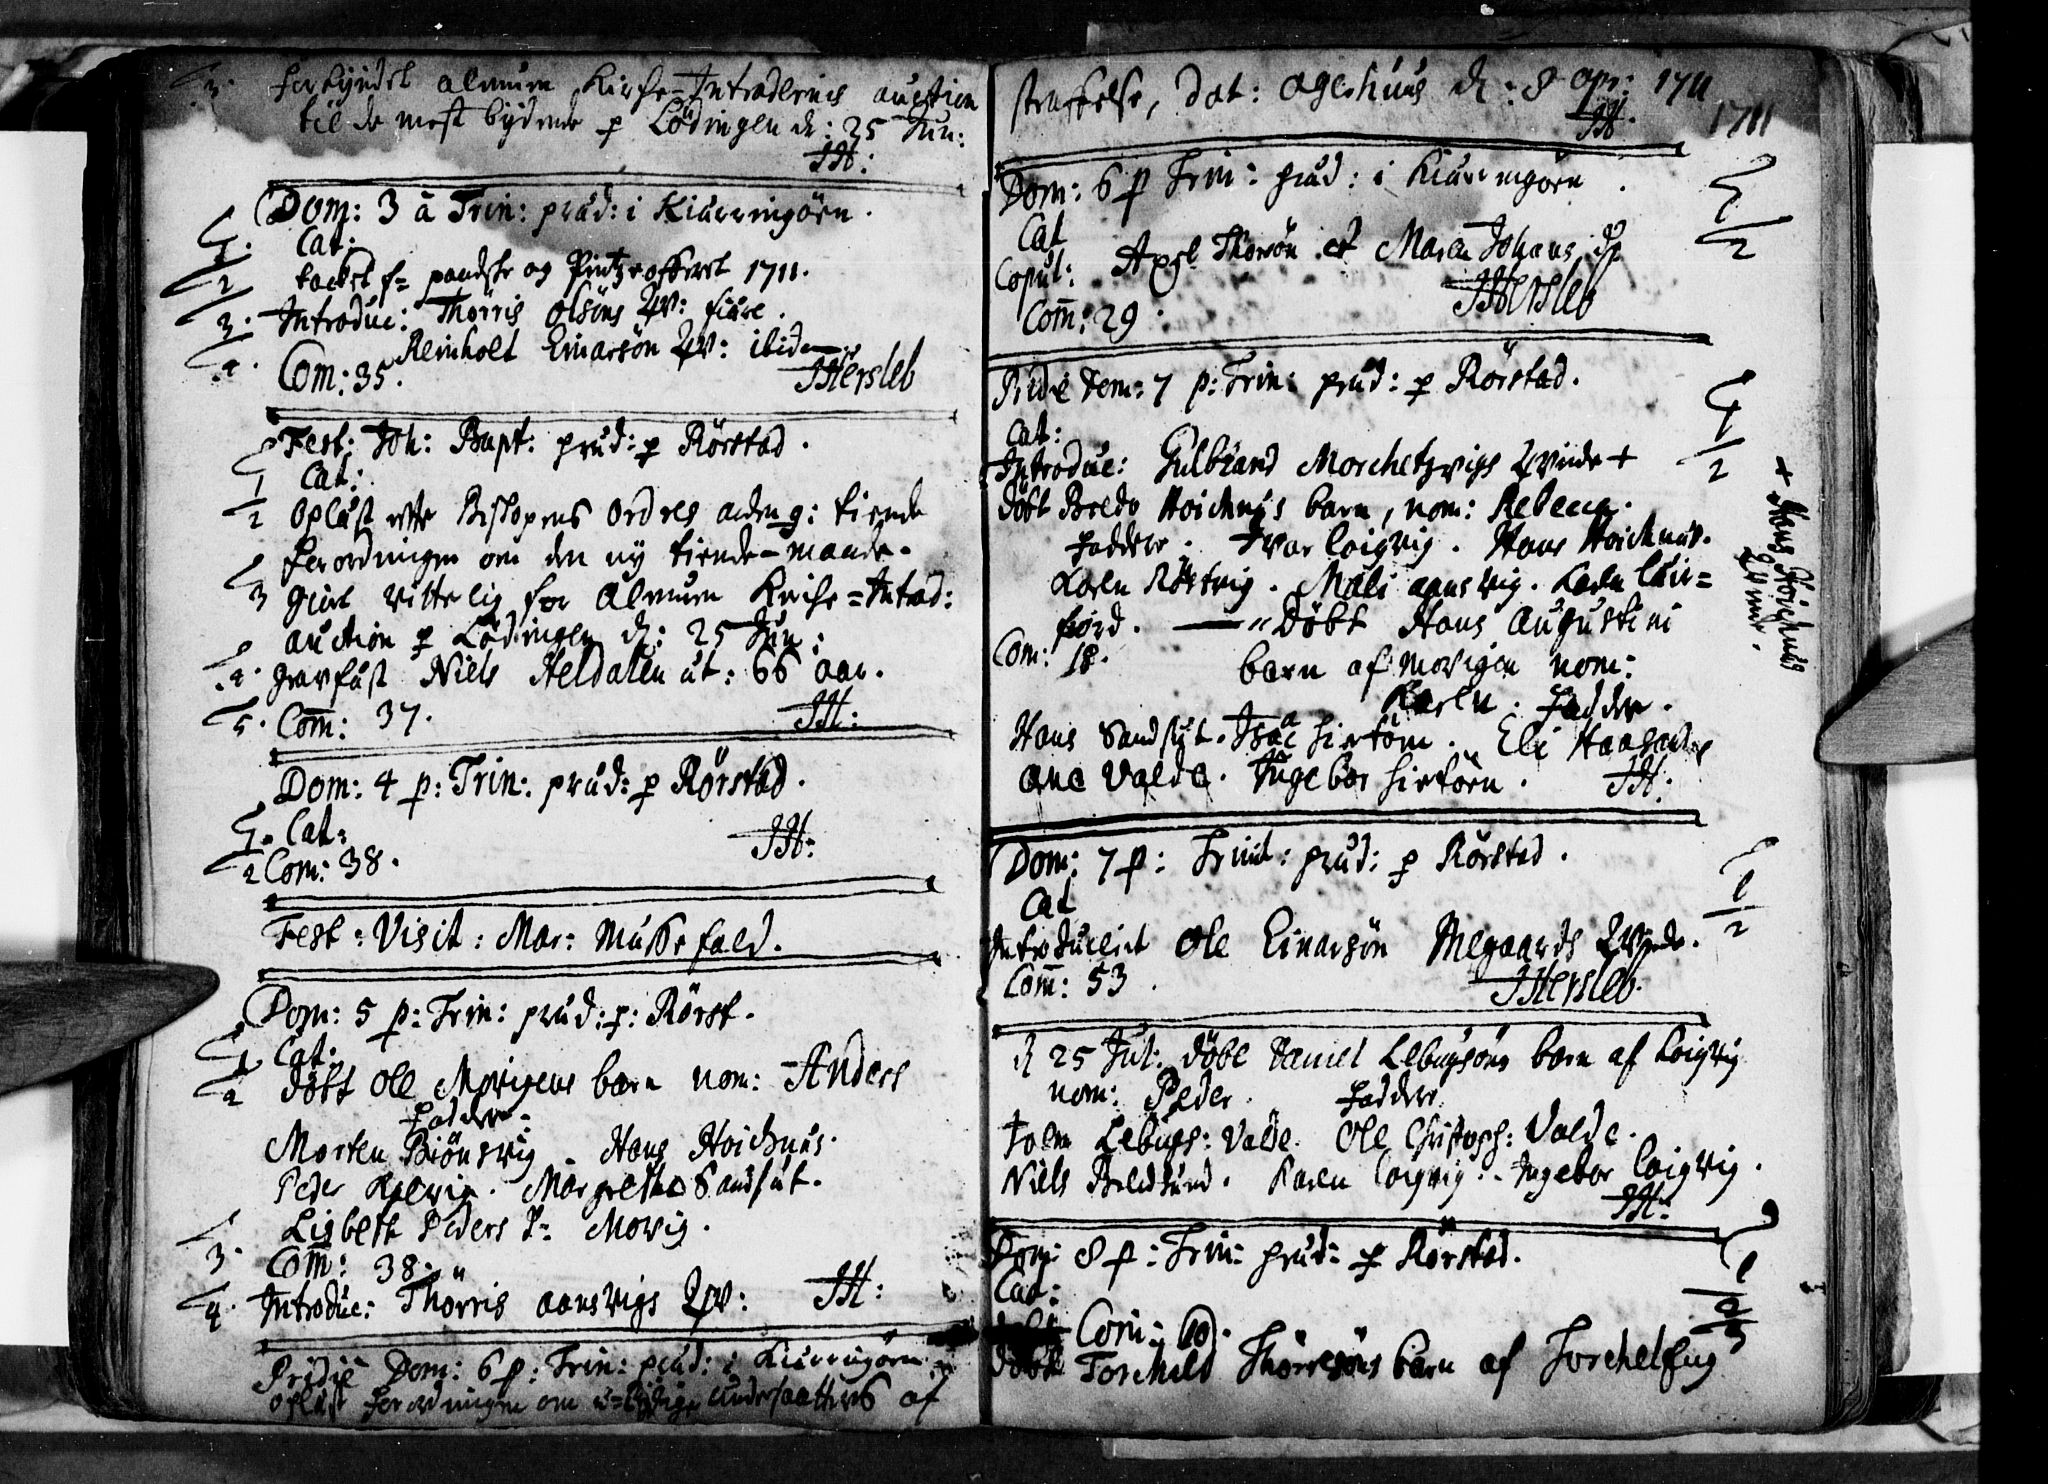 3. forkyndet almuen Kirche-Intradernes auction
til de mest bydende p Lödingen d: 25 Jun:
JH:
Dom: 3 à Trin: præd: i Kiurringörn.
1. Cat:
2 tacket f= og 1711.
3. Introduc: Thörris Olsöns Qv: fiære.
Reinholt Einarsön Qv: ibidem.
4. Com: 35.
JHersleb
Fest: Joh: Bapt: præd: p Rörstad.
1 Cat:
2 Oplæst Bispens Ordres tiende
forordningen om den ny tiende-mande.
3 giort vitterlig for Almuen Kirche=Intrad:
auction p Lödingen d: 25 Jun:
4. gravfæst Niels Heldalen æt: 66 aar.
5. Com: 37.
JH:
Dom: 4 p: Trin: præd: p Rörstad.
1. Cat:
2 Com: 38.
JH:
Fest: Visit: Mar: Messefald.
Dom: 5 p: Trin: præd: p: Rörst.
1 Cat:
2 Döbt Ole Movigens barn nom: Anders
Faddere:
Morten Biönsvig. Hans Hoichnæs.
Peder Kalvig. Margrethe Sandsæt.
Lisbeth Peders D= Movig.
3. Com: 38.
4. Introduc: Thörris aansvigs Qv:
JH:
Pridie Dom: 6 p: Trin: præd: i Kiurringörn
oplæst forordningen om undersaatters af
straffelse, Dat: Agerhuus d: 8 Apr: 1711
JH.
1711
Dom: 6 p Trin: præd: i Kiurringörn.
Cat 1
Copul: Axel Thorsön et Maren Johans D: 2
JHersleb
Com: 29.
Pridie Dom: 7 p: Trin: præd: p Rörstad.
Cat: 1
Introduc: Gulbrand Morchetzvigs Qvinde + 2
+ Hans Hoichnæs
Qvinde.
Döbt Bredo Hoichnæs barn, nom: Rebecca.
Faddere. Ivar Loigvig. Hans Hoichnæs.
Karen Röttvig. Mali aansvig. Karen Leir=
fiord. — Döbt Hans Augustini
Com: 18. barn af movigen nom:
Karen. Faddere.
Hans Sandsæt. Isac hiertöen. Eli
Ane Valde. Ingebor hiertöen. JH:
Dom: 7 p: Trinit: præd: p Rörstad.
Cat 1
Introducerit Ole Einarsön Megaards Qvinde. 2
Com: 53.
JHersleb.
d 25 Jul: döbt Daniel Lebugsöns barn af Loigvig
nom: Peder. Faddere
Lebugs: Valde. Ole Christoph: Valde.
Niels Breidsund. Karen Loigvig. Ingebor Loigvig.
JH:
Dom: 8 p: Trin: præd: p Rörstad.
Cat: 1
Com: 10. 2
Döbt Torchild Thörresöns barn af 3